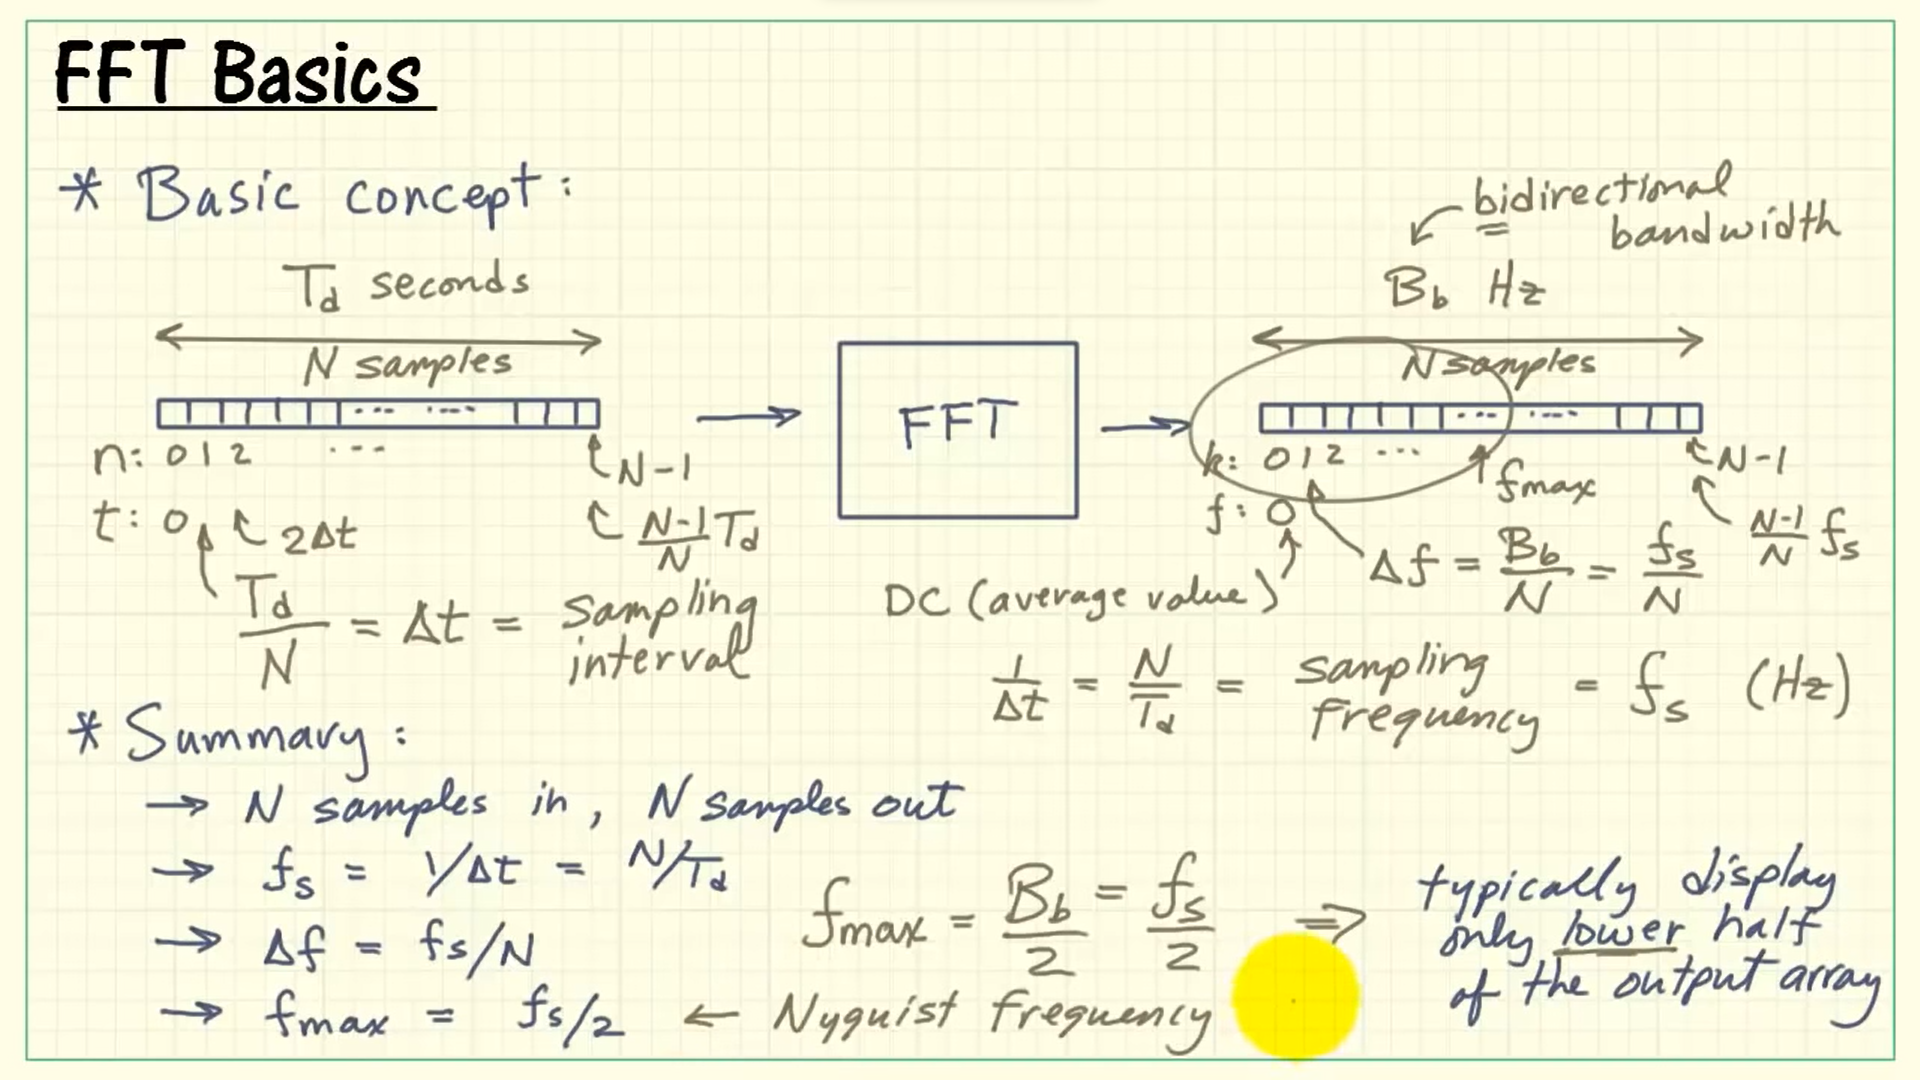 FFT Basics
* Basic concept:
T_d seconds
N samples
n: 0 1 2 ... N-1
t: 0 2Δt (N-1)/N T_d
T_d/N = Δt = sampling interval
FFT
bidirectional bandwidth
B_b Hz
N samples
k: 0 1 2 ... fmax N-1
f: 0 Δf = B_b/N = f_s/N (N-1)/N f_s
DC (average value)
1/Δt = N/T_d = sampling frequency = f_s (Hz)
* Summary:
→ N samples in, N samples out
→ f_s = 1/Δt = N/T_d
→ Δf = f_s/N
→ fmax = f_s/2 ← Nyquist frequency
fmax = B_b/2 = f_s/2 ⇒ typically display
only lower half
of the output array